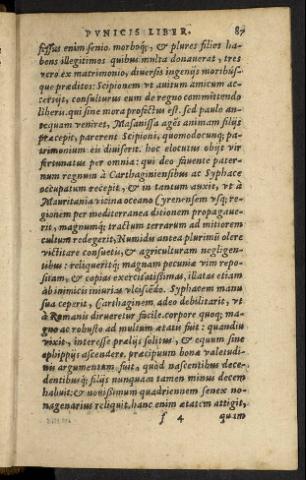 PVNICIS LIBER. 87
fessus enim senio. morboq́;, & plures filios ha-
bens illegitimos quibus multa donauerat, tres
vero ex matrimonio, diuersis ingenijs moribúsq́ue
præditos: Scipionem vt auitum amicum ac-
cersijt, consulturus eum de regno committendo
liberis. qui sine mora profectus est. sed paulo an-
tequam veniret, Masanissa agēs animam filijs
præcepit, parerent Scipioni, quomodocunq; pa-
trimonium eis diuiserit. hoc elocutus obijt vir
fortunatus per omnia: qui deo fauente pater-
num regnum à Carthaginensibus ac Syphace
occupatum recepit, & in tantum auxit, vt à
Mauritania vicina oceano Cyrenensem vsq; re-
gionem per mediterranea ditionem propagaue-
rit, magnumq́; tractum terrarum ad mitiorem
cultum redegerit, Numidis antea plurimū olere
victitare consuetis, & agriculturam negligen-
tibus: reliqueritq́; magnam pecuniæ vim repo-
sitam, & copias exercitatissimas, illatas etiam
ab inimicis iniurias vlciscēdo. Syphacem manu
sua ceperit, Carthaginem adeo debilitarit, vt
à Romanis dirueretur facile. corpore quoq; ma-
gno ac robusto ad multum ætatis fuit: quandiu
vixit, interesse prælijs solitus, & equum sine
ephippijs ascendere. præcipuum bonæ valetudi-
nis argumentum fuit, quòd nascentibus dece-
dentibusq́; filijs nunquam tamen minus decem
habuit: & nouissimum quadriennem senex no-
nagenarius reliquit. hanc enim ætatem attigit,
f 4 quum